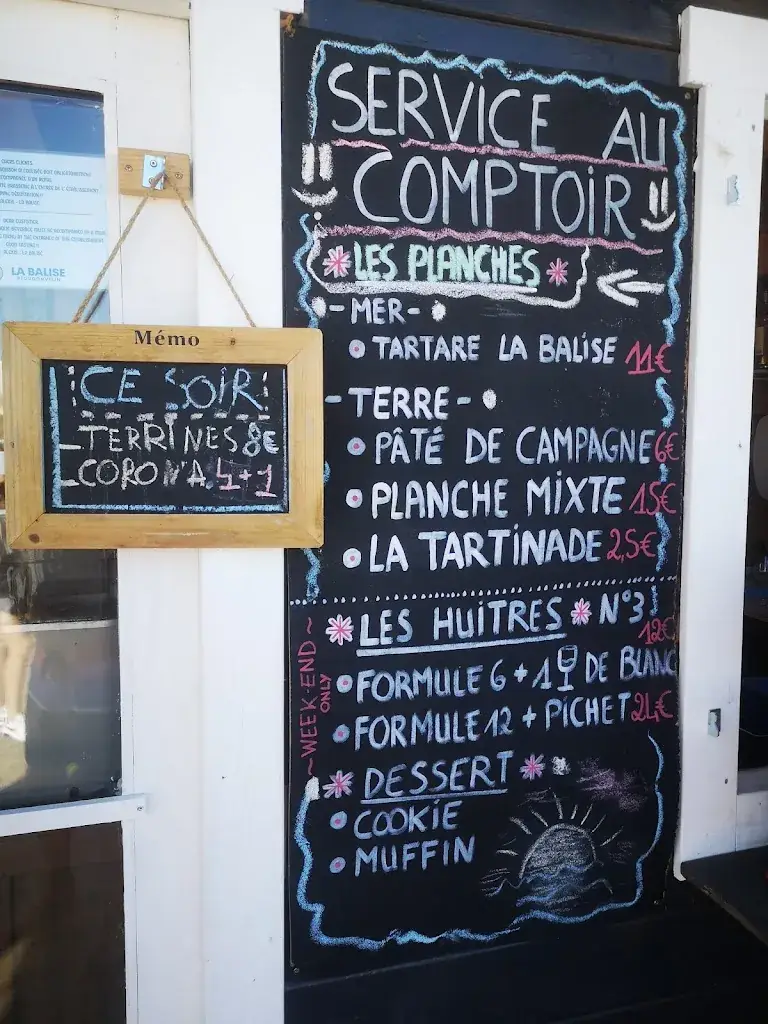 SERVICE AU
COMPTOIR
LES PLANCHES
- MER -
TARTARE LA BALISE 11€
- TERRE -
PÂTÉ DE CAMPAGNE 6€
PLANCHE MIXTE 15€
LA TARTINADE 2,5€
LES HUITRES N°3
12€
FORMULE 6 + 1 DE BLANC
FORMULE 12 + PICHET 21€
~ WEEK-END ~
ONLY
DESSERT
COOKIE
MUFFIN
Mémo
CE SOIR
TERRINES 8€
CORONA 4+1
LA BALISE